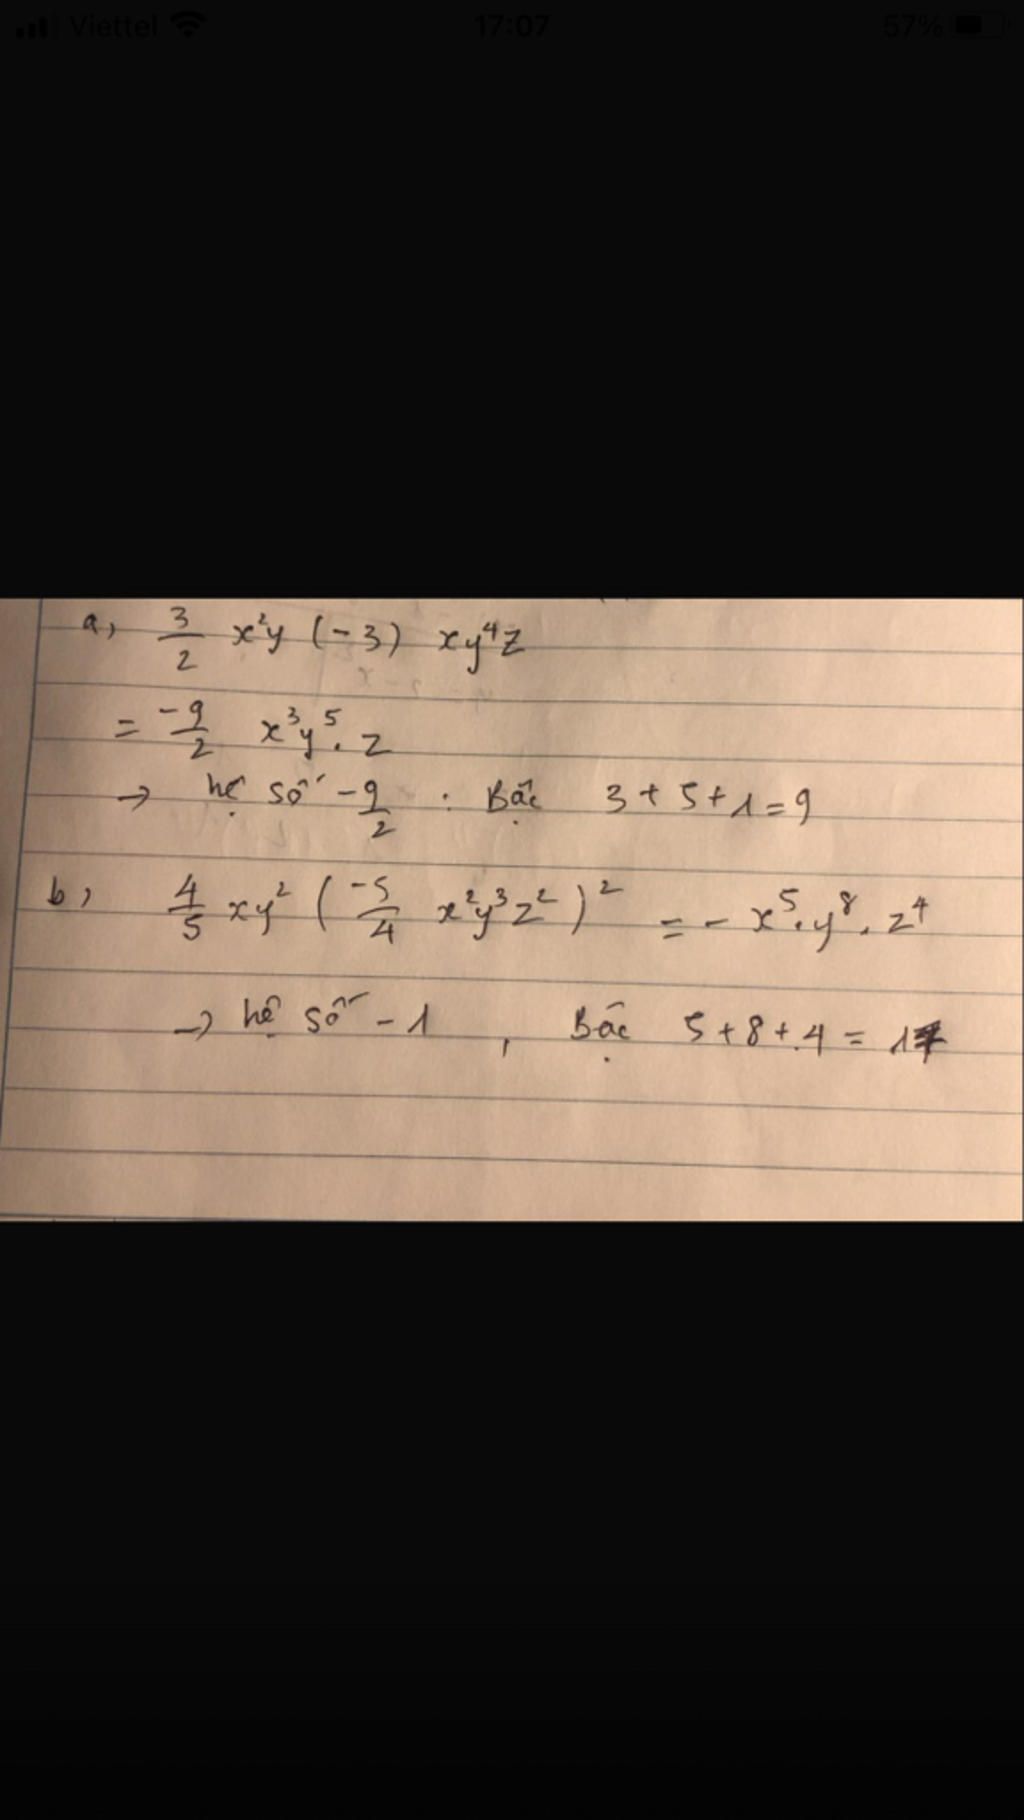 Viettel 17:07 57%
a, 3/2 x²y (-3) xy⁴z
= -9/2 x³y⁵.z
→ hệ số -9/2 : Bậc 3+5+1=9
b, 4/5 xy² (-5/4 x²y³z²)² = - x⁵.y⁸.z⁴
→ hệ số -1 , Bậc 5+8+4 = 17